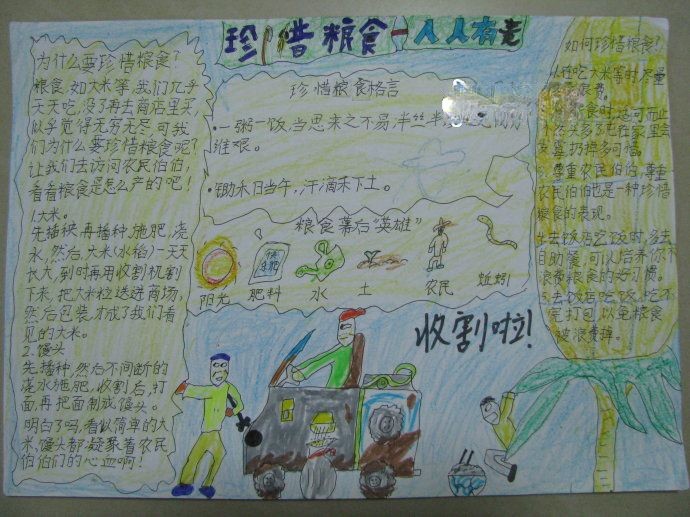 珍惜粮食 人人有责
为什么要珍惜粮食?
粮食,如大米等,我们几乎
天天吃,没了再去商店里买,
似乎觉得无穷无尽,可我
们为什么要珍惜粮食呢?
让我们去访问农民伯伯,
看看粮食是怎么产的吧!
1.大米。
先插秧,再播种,施肥,浇
水,然后,大米(水稻)一天天
长大,到时再用收割机割
下来,把大米粒送进商场,
然后包装,才成了我们看
见的大米。
2.馒头
先播种,然后不间断的
浇水施肥,收割后,打
面,再把面制成馒头。
明白了吗,看似简单的大
米,馒头都凝聚着农民
伯伯们的心血啊!
珍惜粮食格言
·一粥一饭,当思来之不易,半丝半
维艰。
·锄禾日当午,汗滴禾下土。
粮食幕后“英雄”
阳光 肥料 水 土 农民 蚯蚓
收割啦!
如何珍惜粮食?
在吃大米等时,尽量
浪费。
食时适可而止
多了吃在家里会
发霉,扔掉多可惜。
尊重农民伯伯,尊重
农民伯伯也是一种珍惜
粮食的表现。
4.去饭店吃饭时,多去
自助餐,可以培养你不
浪费粮食的好习惯。
5.去饭店吃饭,吃不
完打包,以免粮食
被浪费掉。